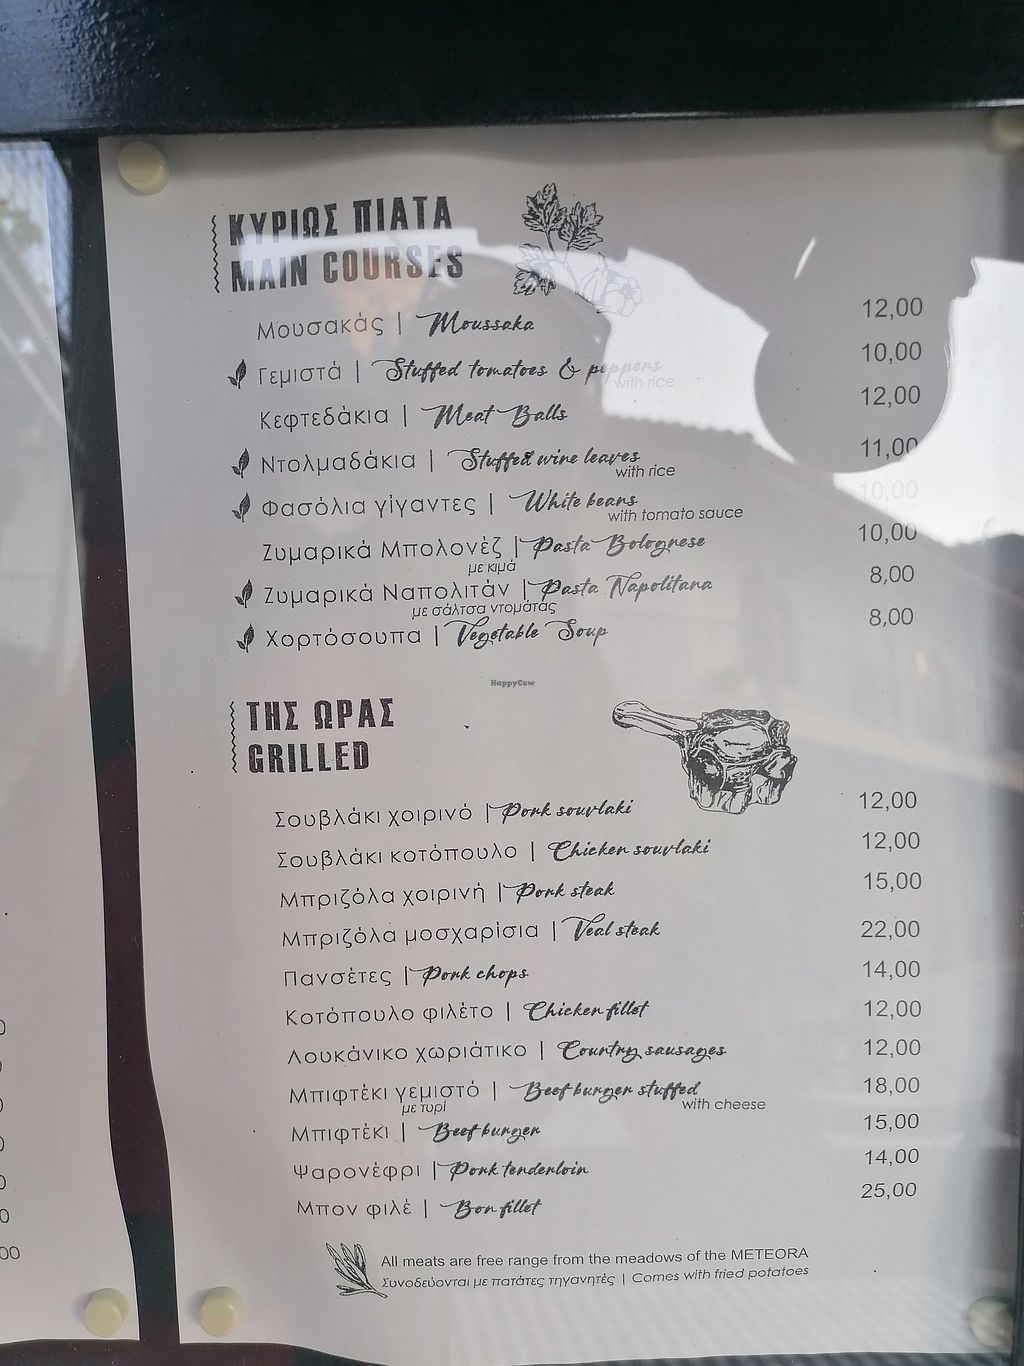 ΚΥΡΙΩΣ ΠΙΑΤΑ
MAIN COURSES
Μουσακάς | Moussaka 12,00
Γεμιστά | Stuffed tomatoes & peppers 10,00
with rice
Κεφτεδάκια | Meat Balls 12,00
Ντολμαδάκια | Stuffed wine leaves 11,00
with rice
Φασόλια γίγαντες | White beans 10,00
with tomato sauce
Ζυμαρικά Μπολονέζ | Pasta Bolognese 10,00
με κιμά
Ζυμαρικά Ναπολιτάν | Pasta Napolitana 8,00
με σάλτσα ντομάτας
Χορτόσουπα | Vegetable Soup 8,00
HappyCow
ΤΗΣ ΩΡΑΣ
GRILLED
Σουβλάκι χοιρινό | Pork souvlaki 12,00
Σουβλάκι κοτόπουλο | Chicken souvlaki 12,00
Μπριζόλα χοιρινή | Pork steak 15,00
Μπριζόλα μοσχαρίσια | Veal steak 22,00
Πανσέτες | Pork chops 14,00
Κοτόπουλο φιλέτο | Chicken fillet 12,00
Λουκάνικο χωριάτικο | Country sausages 12,00
Μπιφτέκι γεμιστό | Beef burger stuffed 18,00
με τυρί with cheese
Μπιφτέκι | Beef burger 15,00
Ψαρονέφρι | Pork tenderloin 14,00
Μπον φιλέ | Bon fillet 25,00
All meats are free range from the meadows of the METEORA
Συνοδεύονται με πατάτες τηγανητές | Comes with fried potatoes